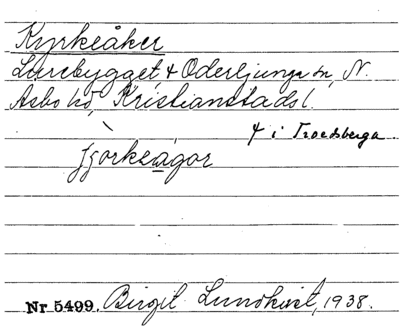 Kyrkeåker
Lurebygget & Oderljunga sn, N.
Åsbo hd, Kristianstads l.
& i Troedsberga.
fjorkeagor
Nr 5499. Birgit Lundkvist, 1938.